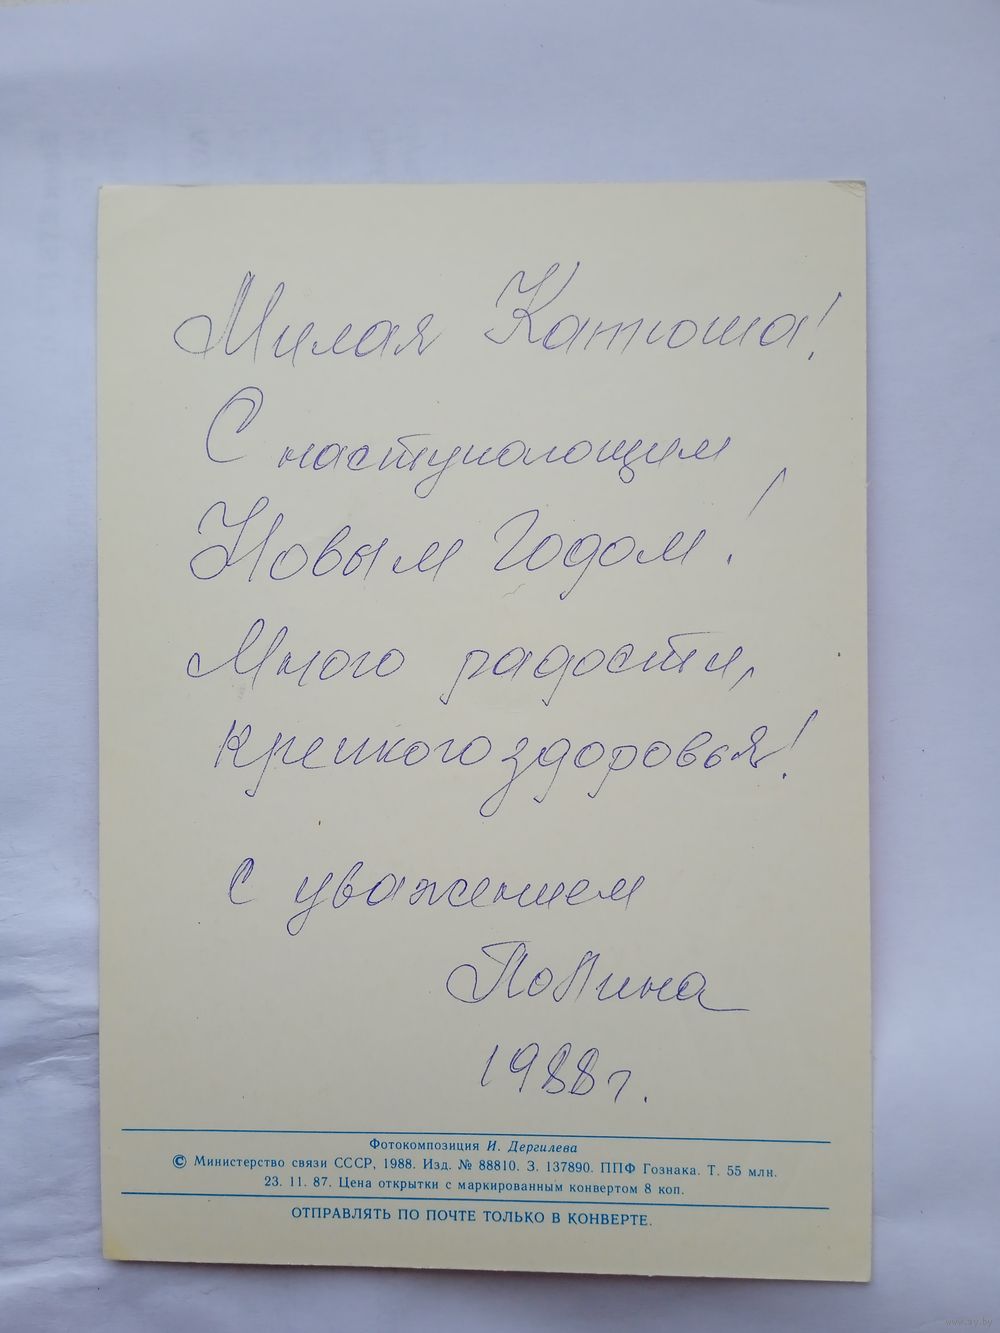 Милая Катюша!
С наступающим
Новым Годом!
Много радости,
крепкого здоровья!
С уважением
1988 г.
Фотокомпозиция И. Дергилева
© Министерство связи СССР, 1988. Изд. № 88810. З. 137890. ППФ Гознака. Т. 55 млн.
23. 11. 87. Цена открытки с маркированным конвертом 8 коп.
ОТПРАВЛЯТЬ ПО ПОЧТЕ ТОЛЬКО В КОНВЕРТЕ.
www.ay.by